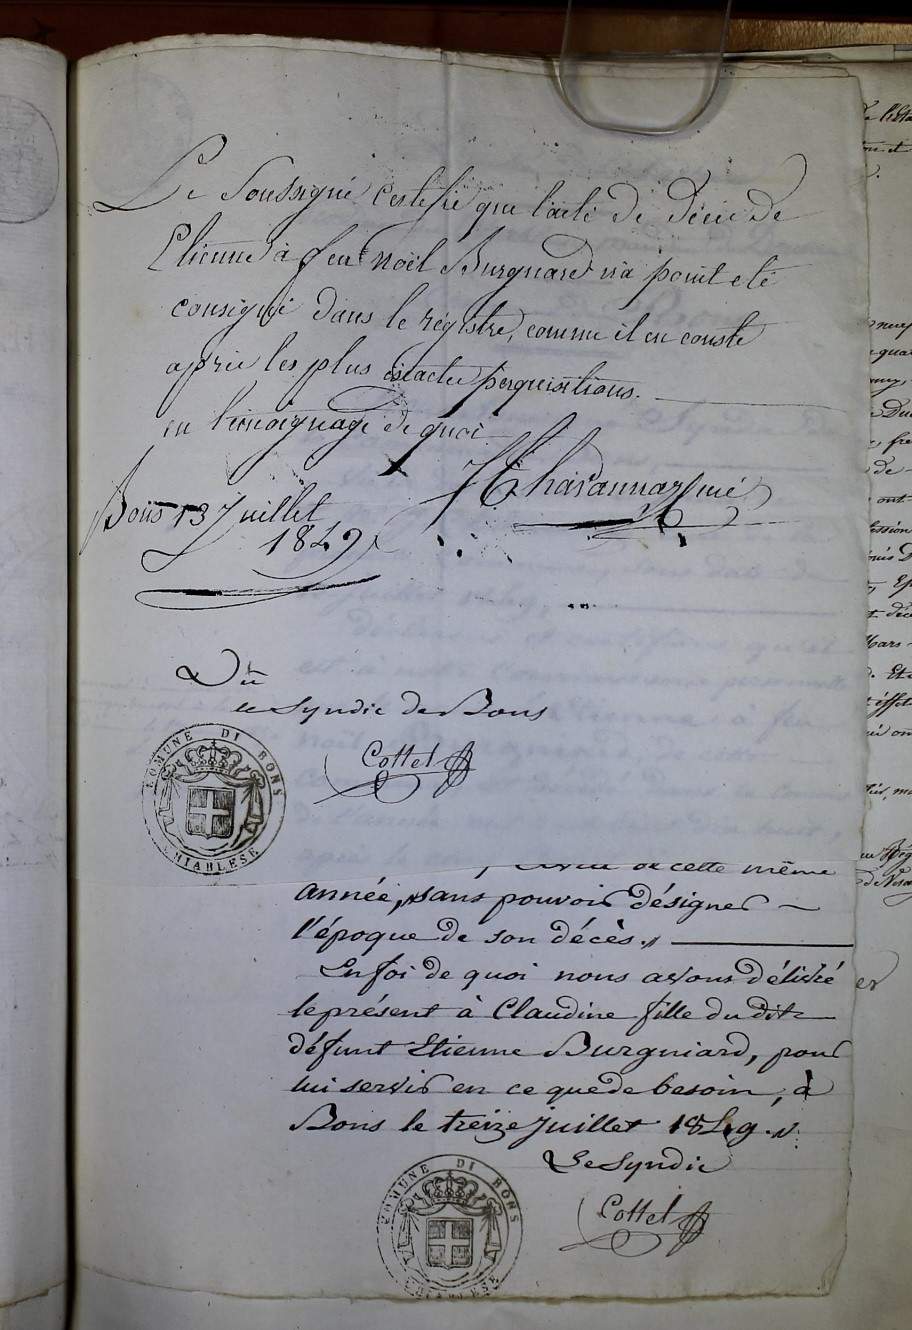 Le Soussigné certifie que l'acte de décie de
Etienne à feu Noël Burgnard n'a point eté
consigné dans le régistre, comme il en conste
aprèe les plus exactes perquisitions.
en témoignage de quoi
Bons 13 Juillet
1849
Vû
le Syndic de Bons
Cottet
COMUNE DI BONS
CHIABLESE
de cette même
année, sans pouvoir désigner
l'époque de son décès.
En foi de quoi nous avons délivré
le présent à Claudine fille du dit
défunt Etienne Burgniard, pour
lui servir en ce que de besoin, à
Bons le treize juillet 1849.
Le Syndic
Cottet
COMUNE DI BONS
CHIABLESE